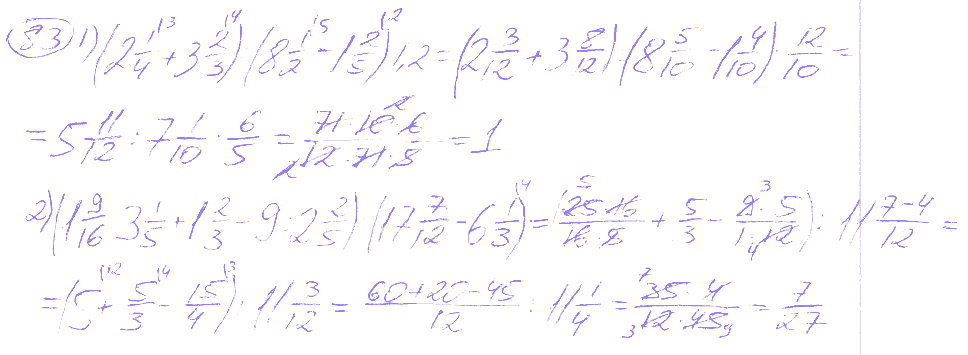 83 1) (2 1/4 + 3 2/3) (8 1/2 - 1 2/5) 1,2 = (2 3/12 + 3 8/12) (8 5/10 - 1 4/10) · 12/10 =
= 5 11/12 : 7 1/10 · 6/5 = 71·10·6/12·71·5 = 1
2) (1 9/16 3 1/5 + 1 2/3 - 9 : 2 2/5) (17 7/12 - 6 1/3) = (25·16/16·5 + 5/3 - 9·5/1·12) : 11 7-4/12 =
= (5 + 5/3 - 15/4) : 11 3/12 = 60+20-45/12 : 11 1/4 = 35·4/12·45 = 7/27